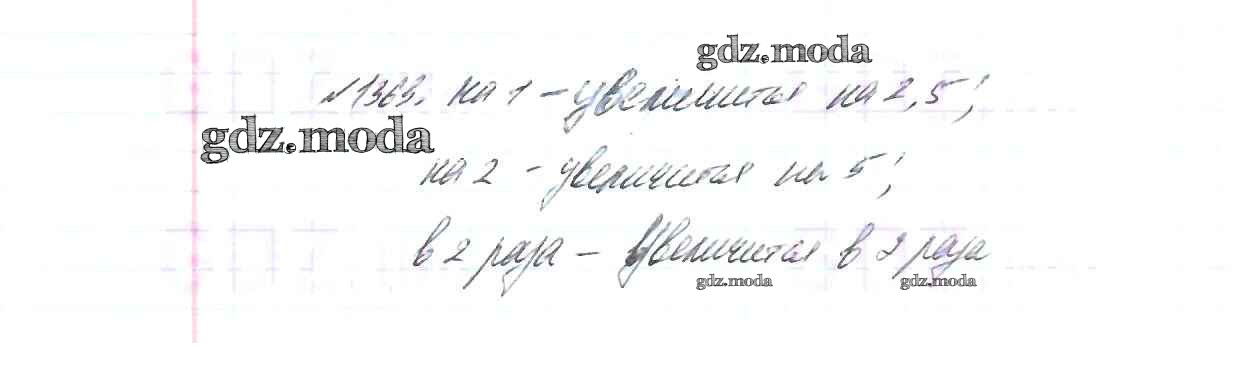 gdz.moda
№1363. на 1 – увеличится на 2,5;
gdz.moda
на 2 – увеличится на 5;
в 2 раза – Увеличится в 2 раза
gdz.moda gdz.moda